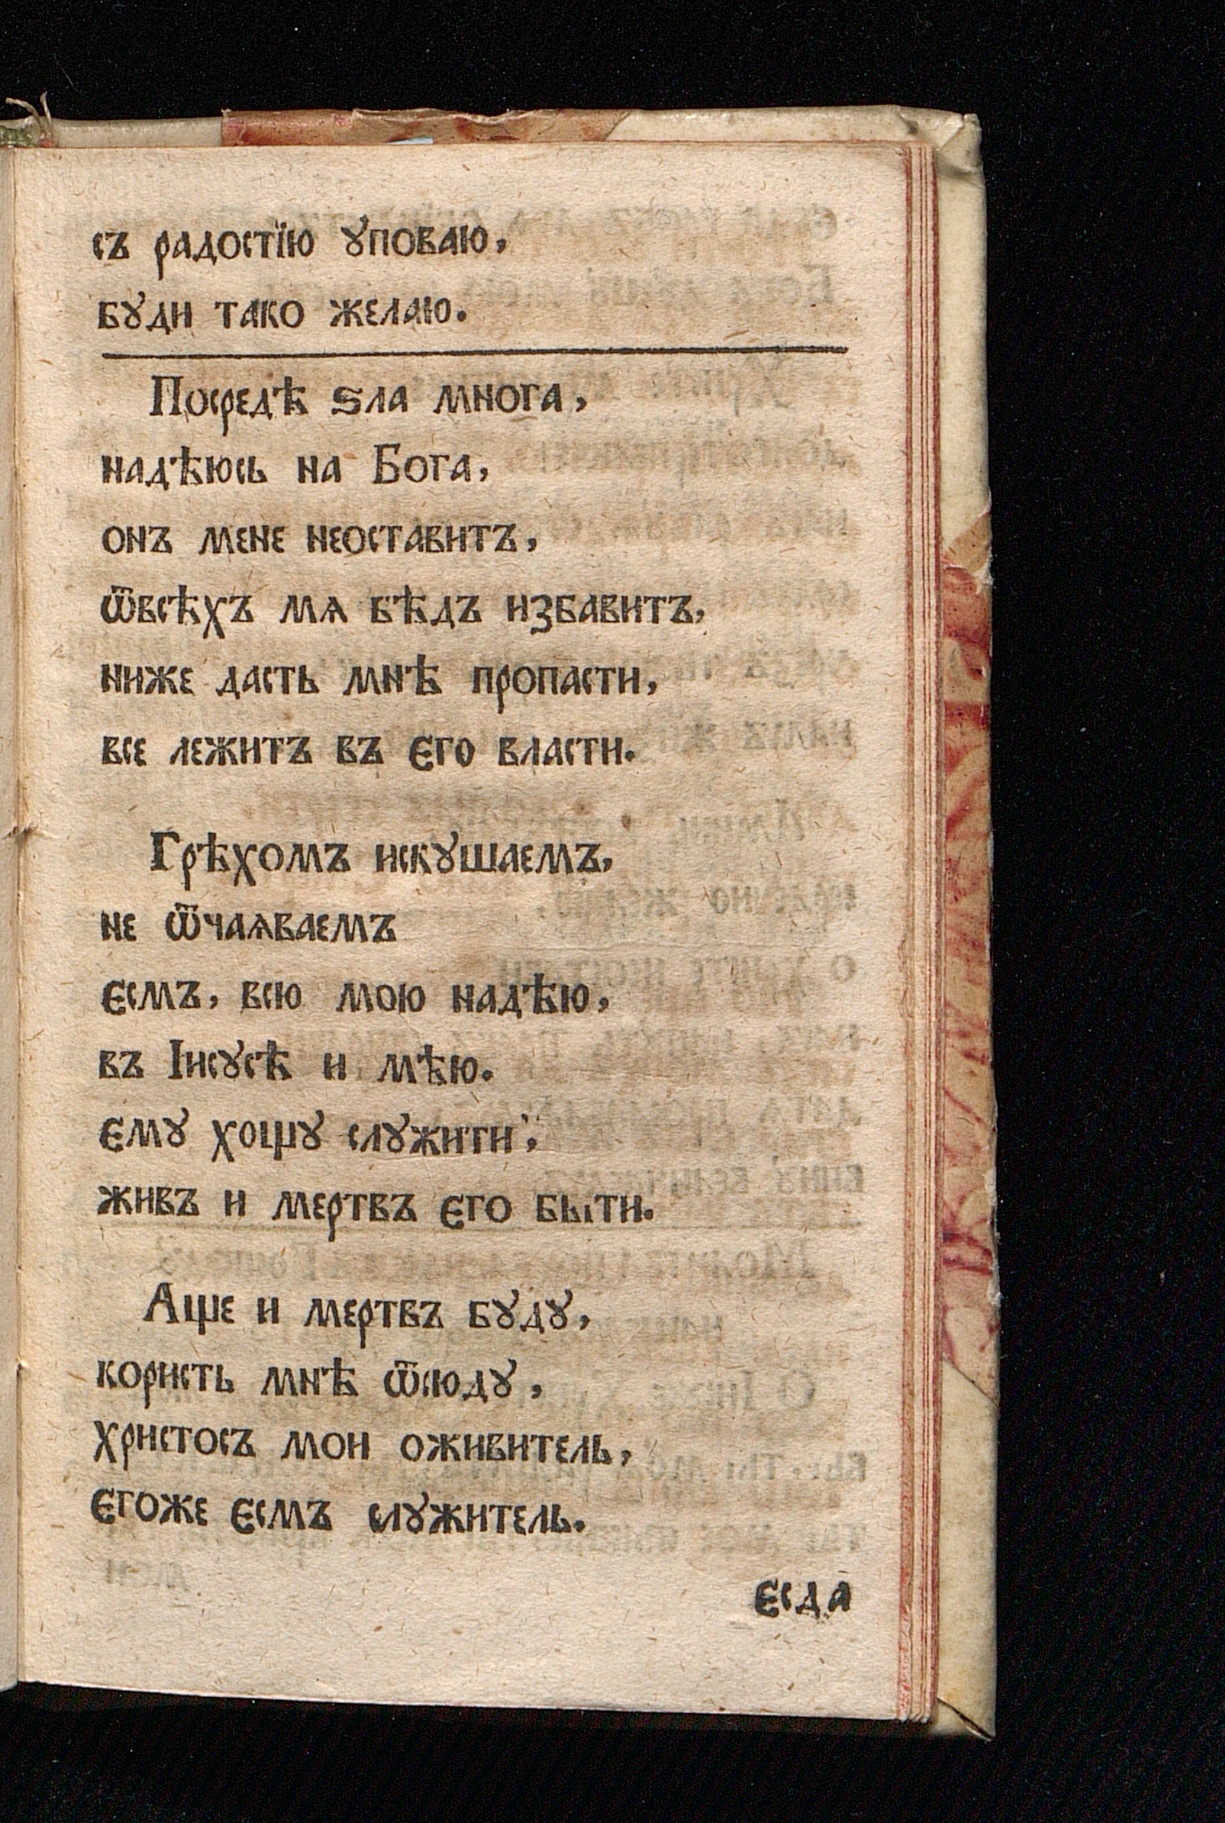 съ радостїю ꙋповаю,
бꙋди тако желаю.
Посредѣ ѕла многа,
надѣюсь на Бога,
онъ мене неоставитъ,
ѿвсѣхъ мѧ бѣдъ избавитъ,
ниже дасть мнѣ пропасти,
все лежитъ въ єго власти.
Грѣхомъ искꙋшаемъ,
не ѿчаѧваемъ
єсмъ, всю мою надѣю,
въ Іисꙋсѣ и мѣю.
ємꙋ хощꙋ слꙋжити,
живъ и мертвъ єго быти.
Аще и мертвъ бꙋдꙋ,
користь мнѣ ѿсюдꙋ,
Христосъ мои оживитель,
єгоже єсмъ слꙋжитель.
єсда